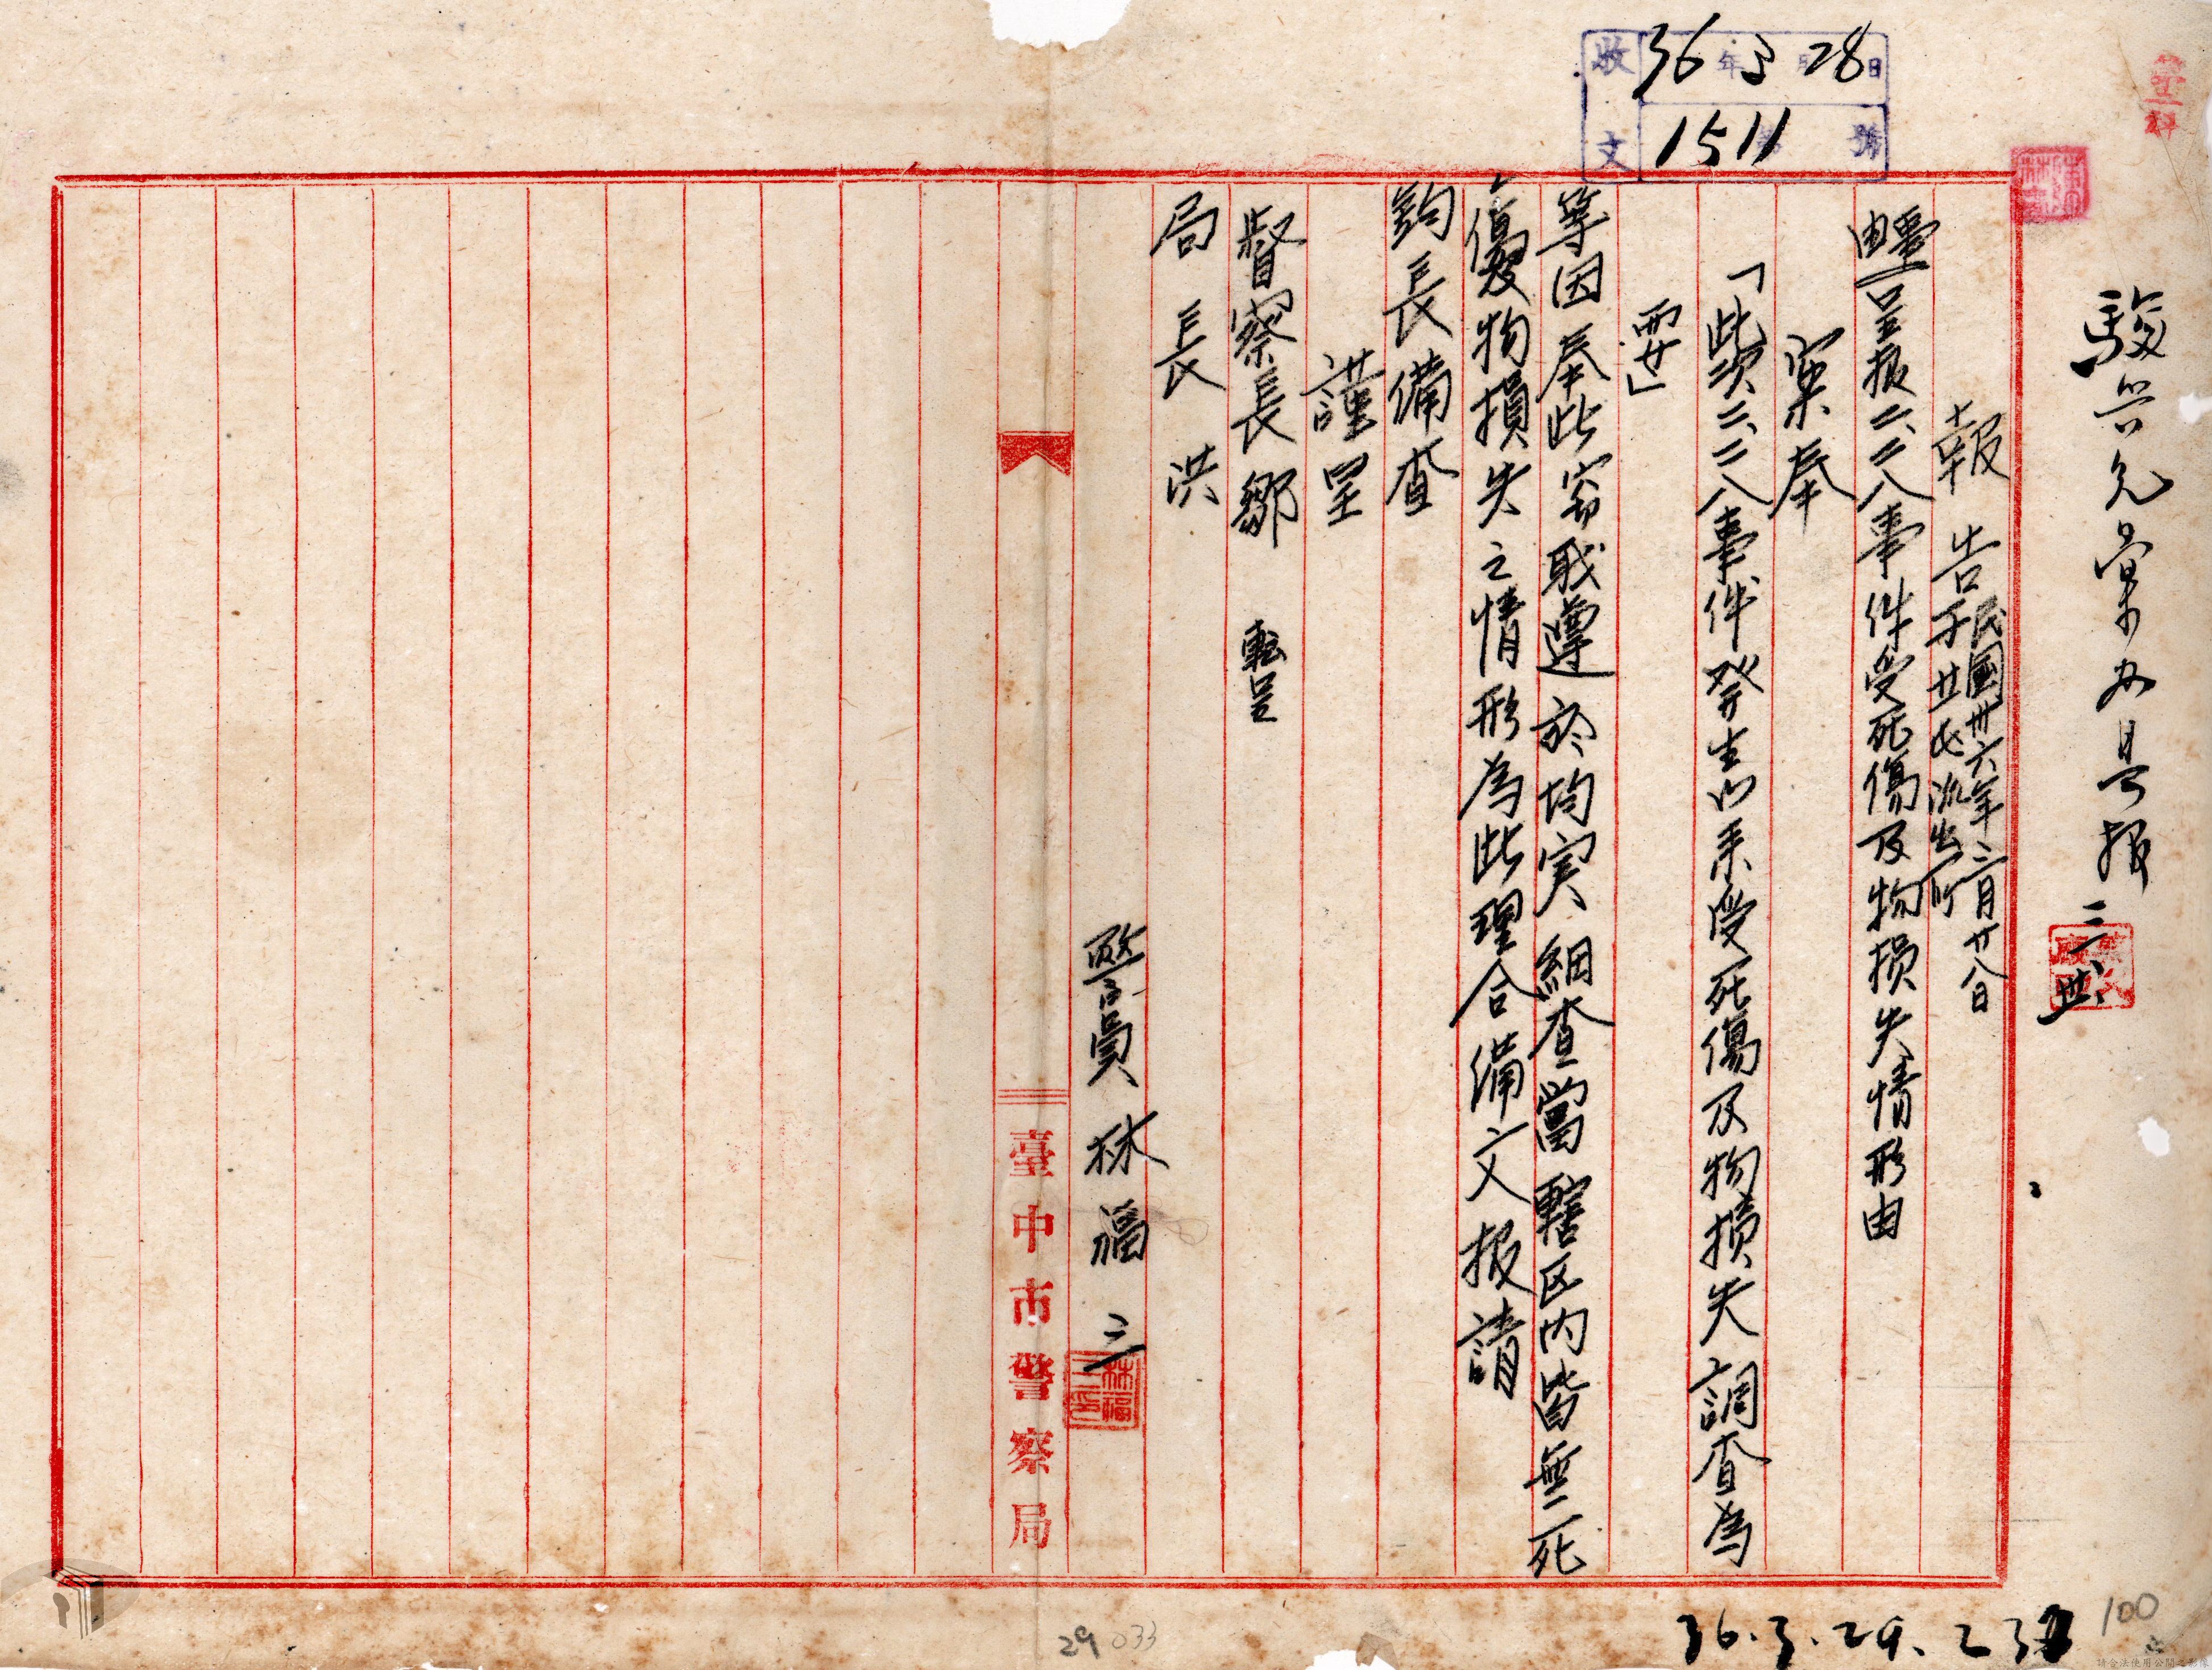 收文 36年3月28日
1511號
壹科
報告 民國卅六年三月廿八日
於 流出所
事由 呈報二、二八事件受死傷及物損失情形由
案奉
「此次二、二八事件發生以來受死傷及物損失調查為
要」
等因奉此竊職遵於均実細查當轄区内皆無死
傷及物損失之情形為此理合備文报請
鈞長備查
謹呈
督察長鄒 転呈
局長洪
警員 林福三
林福三印
臺中市警察局
36.3.29.
29 033
100